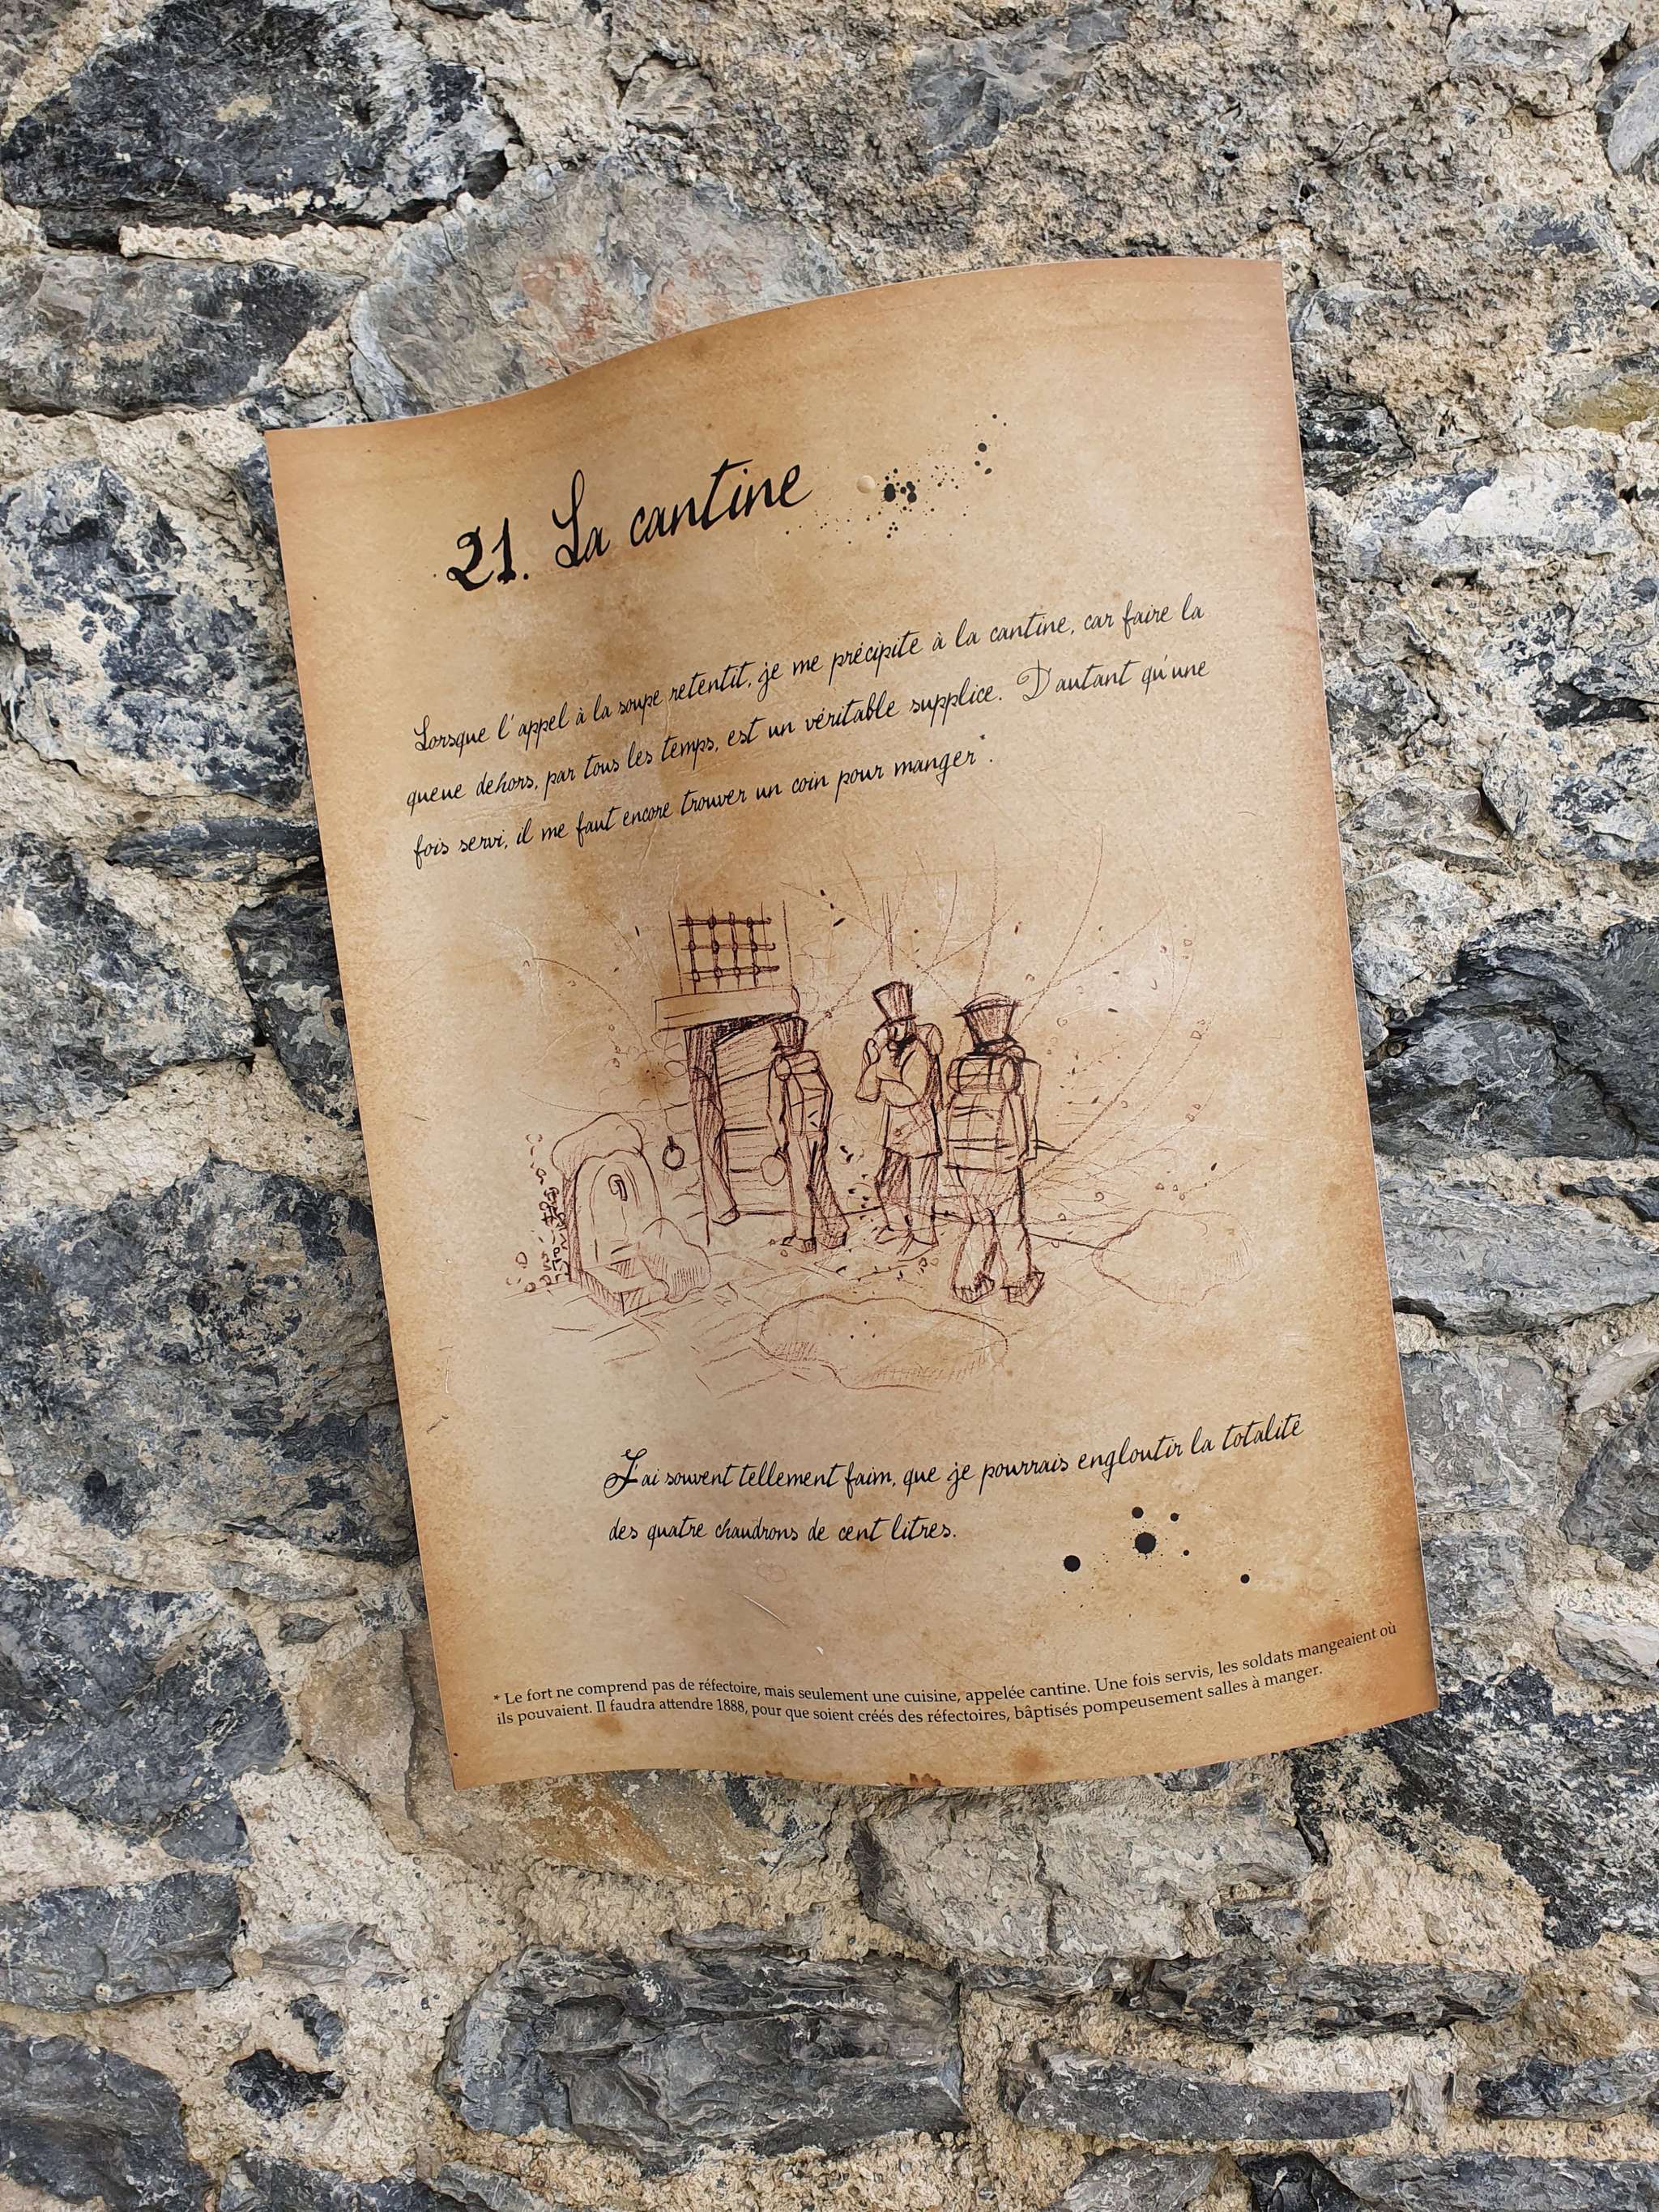 21. La cantine
Lorsque l'appel à la soupe retentit, je me précipite à la cantine, car faire la
queue dehors, par tous les temps, est un véritable supplice. D'autant qu'une
fois servi, il me faut encore trouver un coin pour manger*.
J'ai souvent tellement faim, que je pourrais engloutir la totalité
des quatre chaudrons de cent litres.
* Le fort ne comprend pas de réfectoire, mais seulement une cuisine, appelée cantine. Une fois servis, les soldats mangeaient où
ils pouvaient. Il faudra attendre 1888, pour que soient créés des réfectoires, bâptisés pompeusement salles à manger.